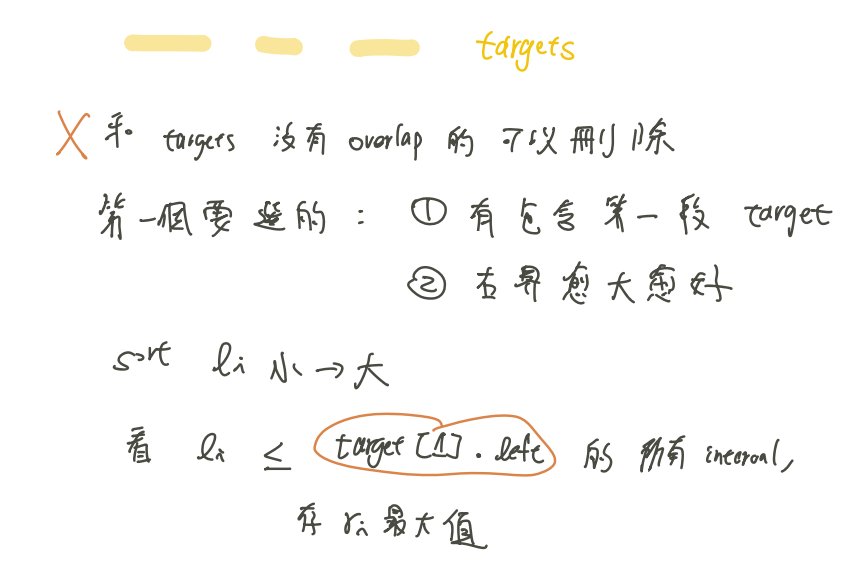 targets
和 targets 沒有 overlap 的 可以刪除
第一個要選的 : ① 有包含第一段 target
② 右界愈大愈好
sort li 小→大
看 li ≤ target[1].left 的所有 interval,
存 ri 最大值